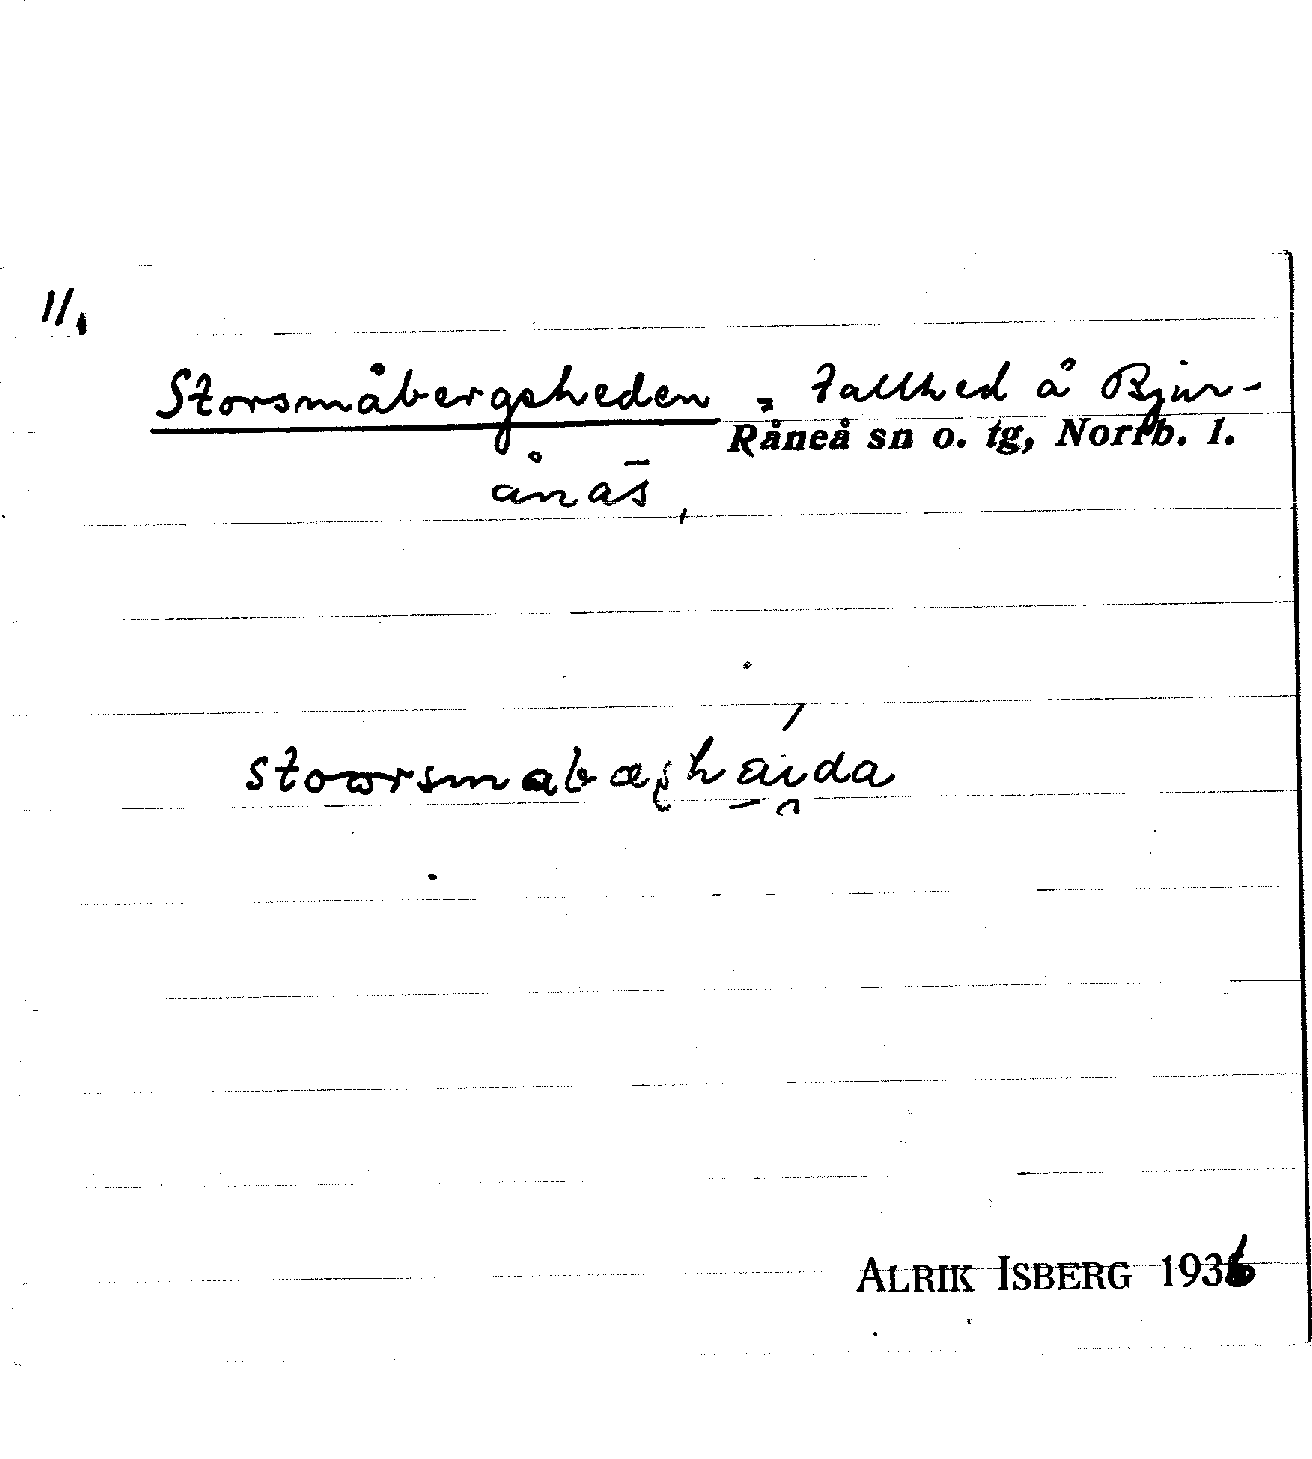 11.
Storsmåbergsheden, tallhed å Bjur-
Råneå sn o. tg, Norrb. l.
ånäs,
ALRIK ISBERG 1936